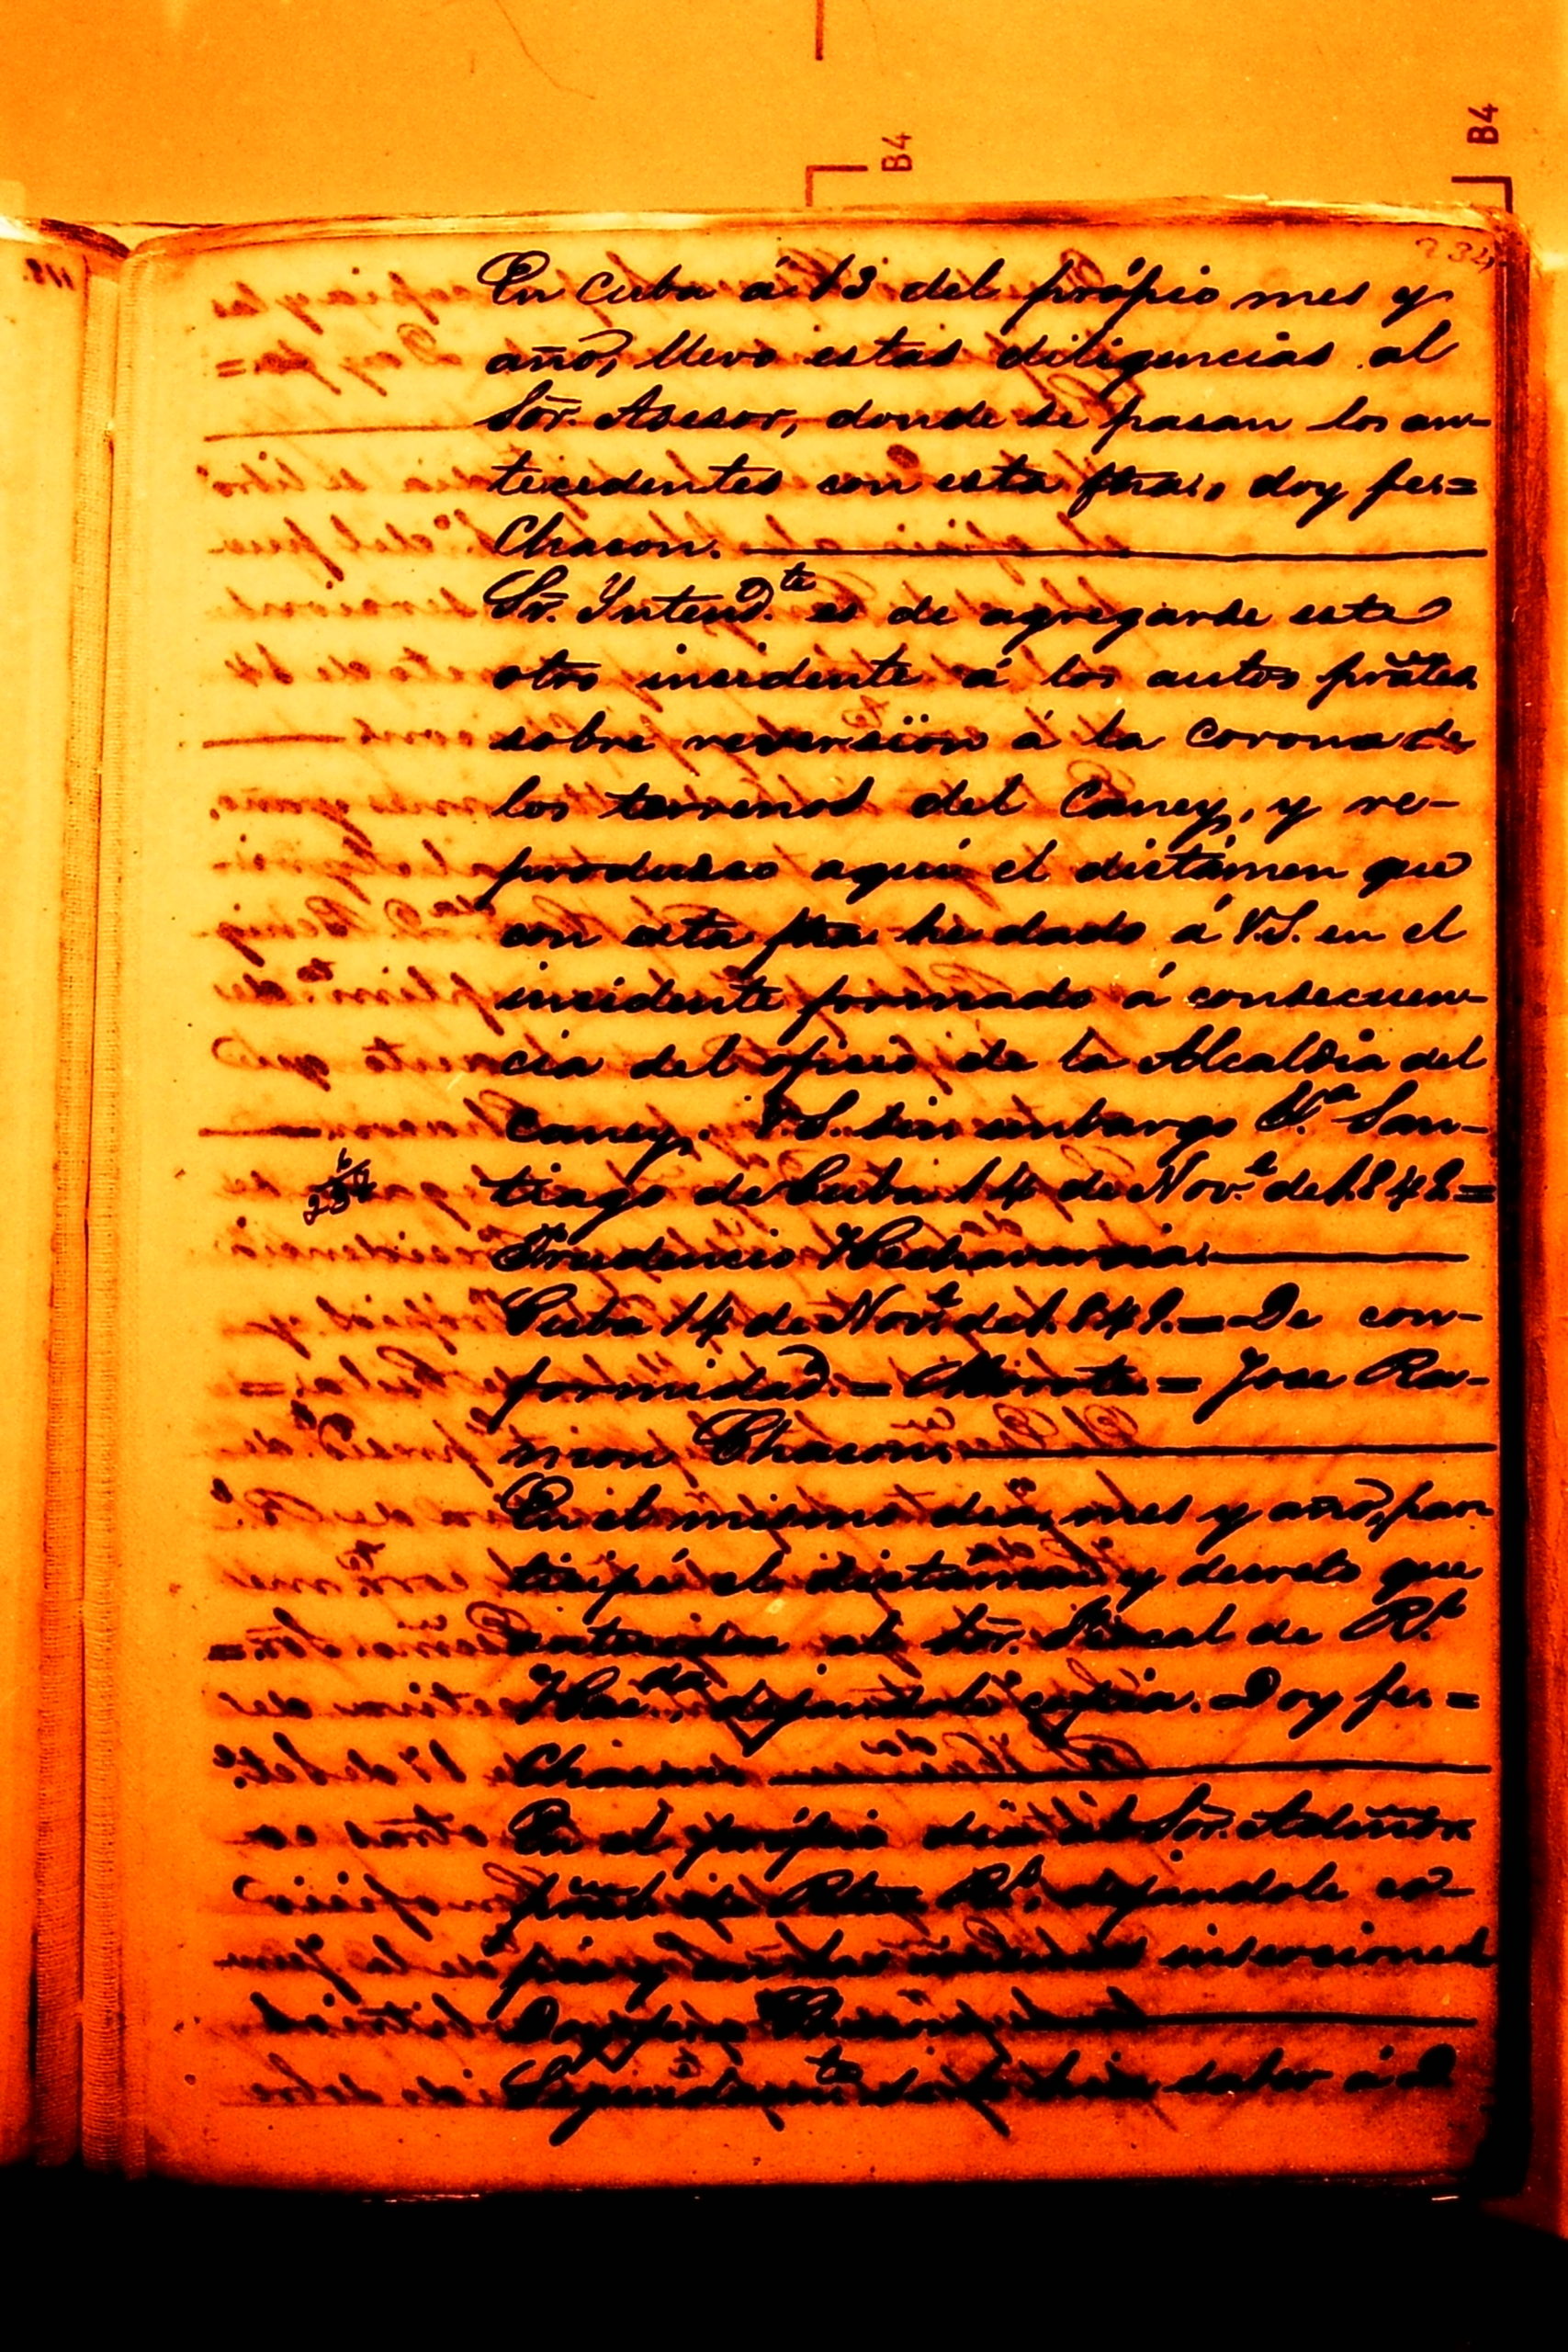 B4
B4
234
En Cuba á 13 del própio mes y
año, llevo estas diligencias al
Sõr. Asesor, donde se pasan los an-
tecedentes con esta fha., doy fee=
Chacon.
Sr. Intend.te es de agregarse este
otro incidente á los autos prãles
sobre reversion á la corona de
los terrenos del Caney, y re-
produsco aqui el dictámen que
con esta fha he dado á V.S. en el
incidente formado á consecuen-
cia del oficio de la Alcaldia del
Caney. V.S. sin embargo &.a San-
tiago de Cuba 14 de Nov.e de 1.842=
Prudencio Hechavarria.
Cuba 14 de Nov.e de 1.842.= De con-
formidad.= = Jose Ra-
mon Chacon.
En el mismo dia, mes y año, par-
ticipé el dictámen y decreto que
al Sõr. Fiscal de R.l
Hac.da, dejandole copia. Doy fee=
Chacon
En el própio dia al Sõr. Admõr
de R.s dejandole co-
pia y inserciones
Doy fee Chacon
saber á D